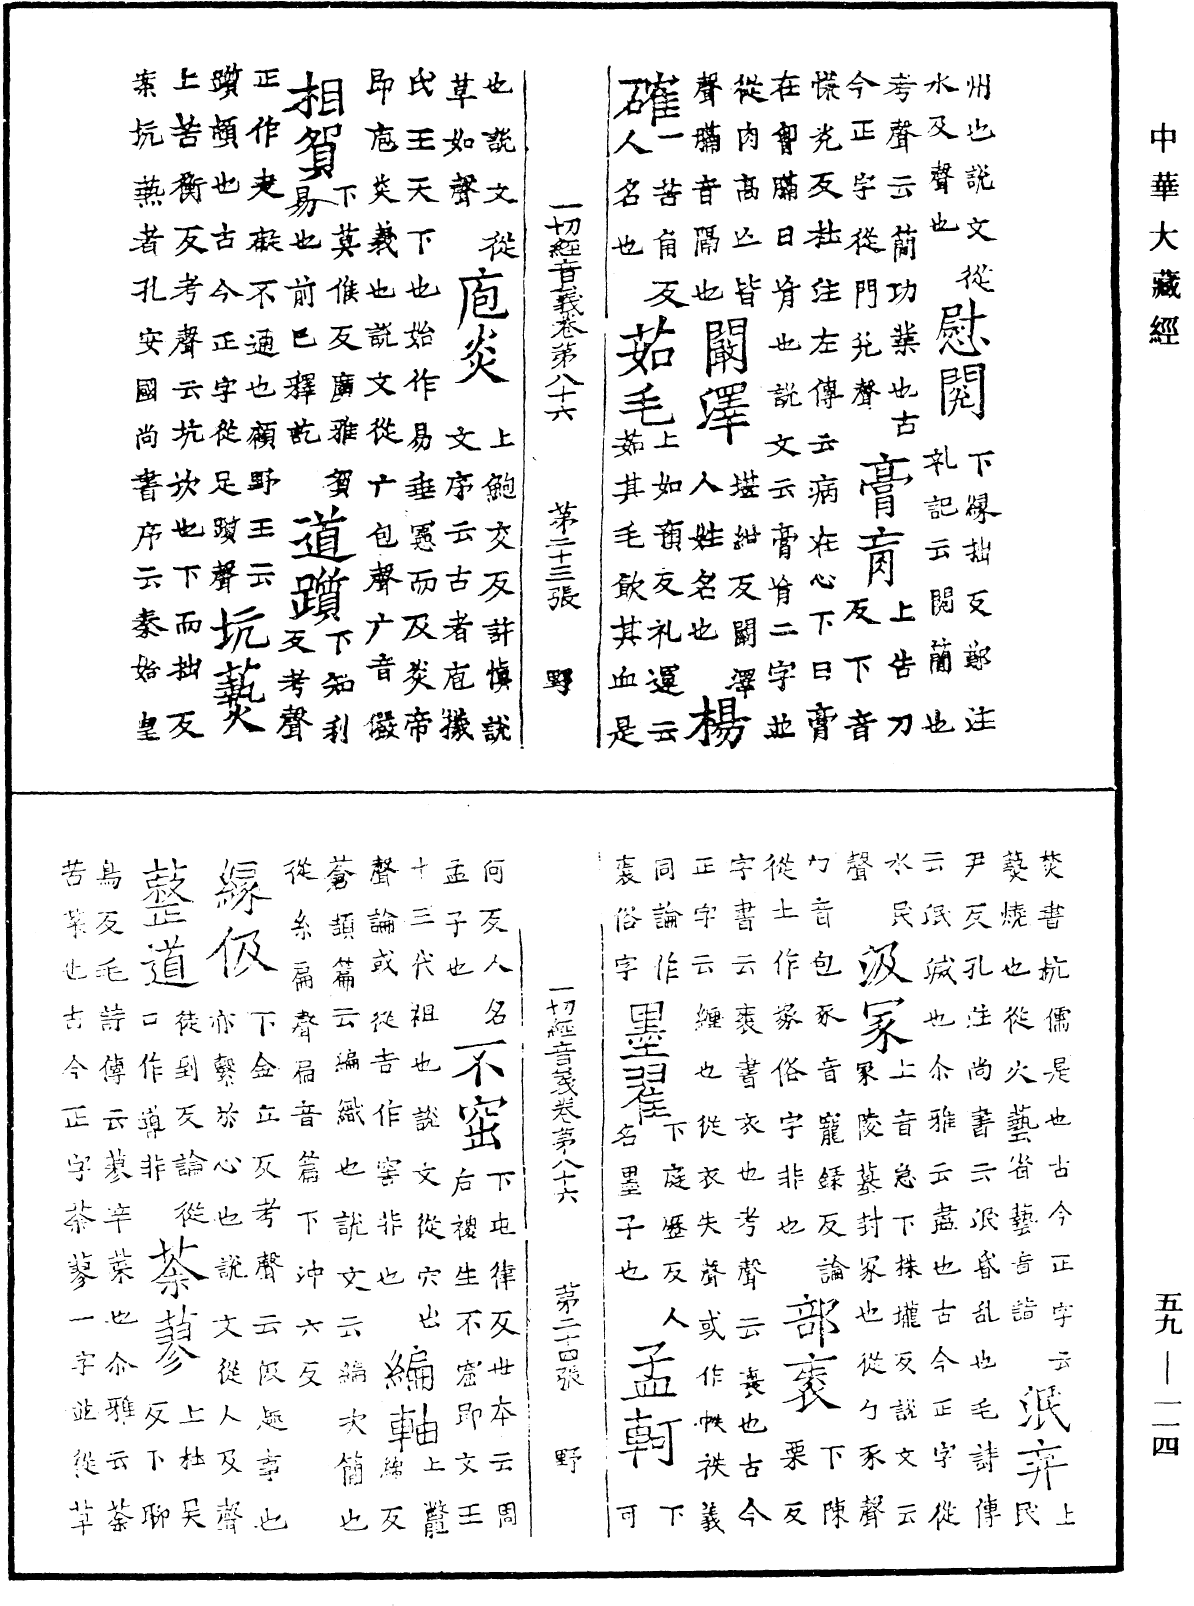 中華大藏經
州也說文從
水及聲也
慰閱
下緣拙反鄭注
礼記云閱簡也
考聲云簡功業也古
今正字從門兌聲
膏肓
上告刀
反下音
慌光反杜注左傳云病在心下曰膏
在胷膈曰肓也說文云膏肓二字並
從肉高亡皆
聲膈音隔也
闞澤
堪紺反闞澤
人姓名也
楊
確
一苦角反
人名也
茹毛
上如預反礼運云
茹其毛飲其血是
一切經音義卷第八十六 第二十三張 野
也說文從
草如聲
庖炎
上鮑交反許慎說
文序云古者庖犧
氏王天下也始作易垂憲而及炎帝
即庖炎義也說文從广包聲广音儼
相貿
下莫候反廣雅貿
易也前已釋訖
道躓
下知利
反考聲
正作疐礙不通也顧野王云
躓頓也古今正字從足躓聲
坑爇
上苦衡反考聲云坑坎也下而拙反
案坑爇者孔安國尚書序云秦始皇
焚書坑儒是也古今正字云
爇燒也從火藝省藝音詣
泯弃
上
民
尹反孔注尚書云泯昏乱也毛詩傳
云泯滅也尒雅云盡也古今正字從
水民
聲
汲冢
上音急下株壠反說文云
冢陵墓封冢也從勹豕聲
勹音包豕音寵録反論
從土作塚俗字非也
部袠
下陳
栗反
字書云袠書衣也考聲云袠也古今
正字云纏也從衣失聲或作帙袟義
同論作
袠俗字
墨翟
下庭歷反人
名墨子也
孟軻
下
可
一切經音義卷第八十六 第二十四張 野
何反人名
孟子也
不窋
下屯律反世本云周
后稷生不窋即文王
十三代祖也說文從穴出
聲論或從告作窖非也
編軸
上鼈
綿反
蒼頡篇云編織也說文云編次簡也
從糸扁聲扁音篇下沖六反
緣伋
下金立反考聲云伋遽事也
亦繫於心也說文從人及聲
整道
徒到反論從
口作導非
荼蓼
上杜吴
反下聊
鳥反毛詩傳云蓼辛菜也尒雅云荼
苦菜也古今正字荼蓼一字並從草
五九—一一四